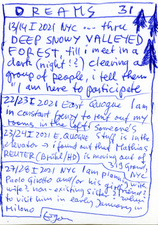 DREAMS 31
13/14 I 2021 NYC --- three
DEEP SNOWY VALLEYED
FOREST, till i meet in a
dark (night!?) clearing a
group of people, i tell them
i am here to participate
22/23 I 2021 East Quogue I am
in constant frenzy to
my rooms, is the left someone's
23/24 I 2021 E. Quogue Stuff is in the
elevator → i found out that Mathias
REUTER is moving out of
27/28 I 2021 NYC I am planning with
Paolo Giretto and/or his
wife? non-existing
to visit him in early January in
Milano